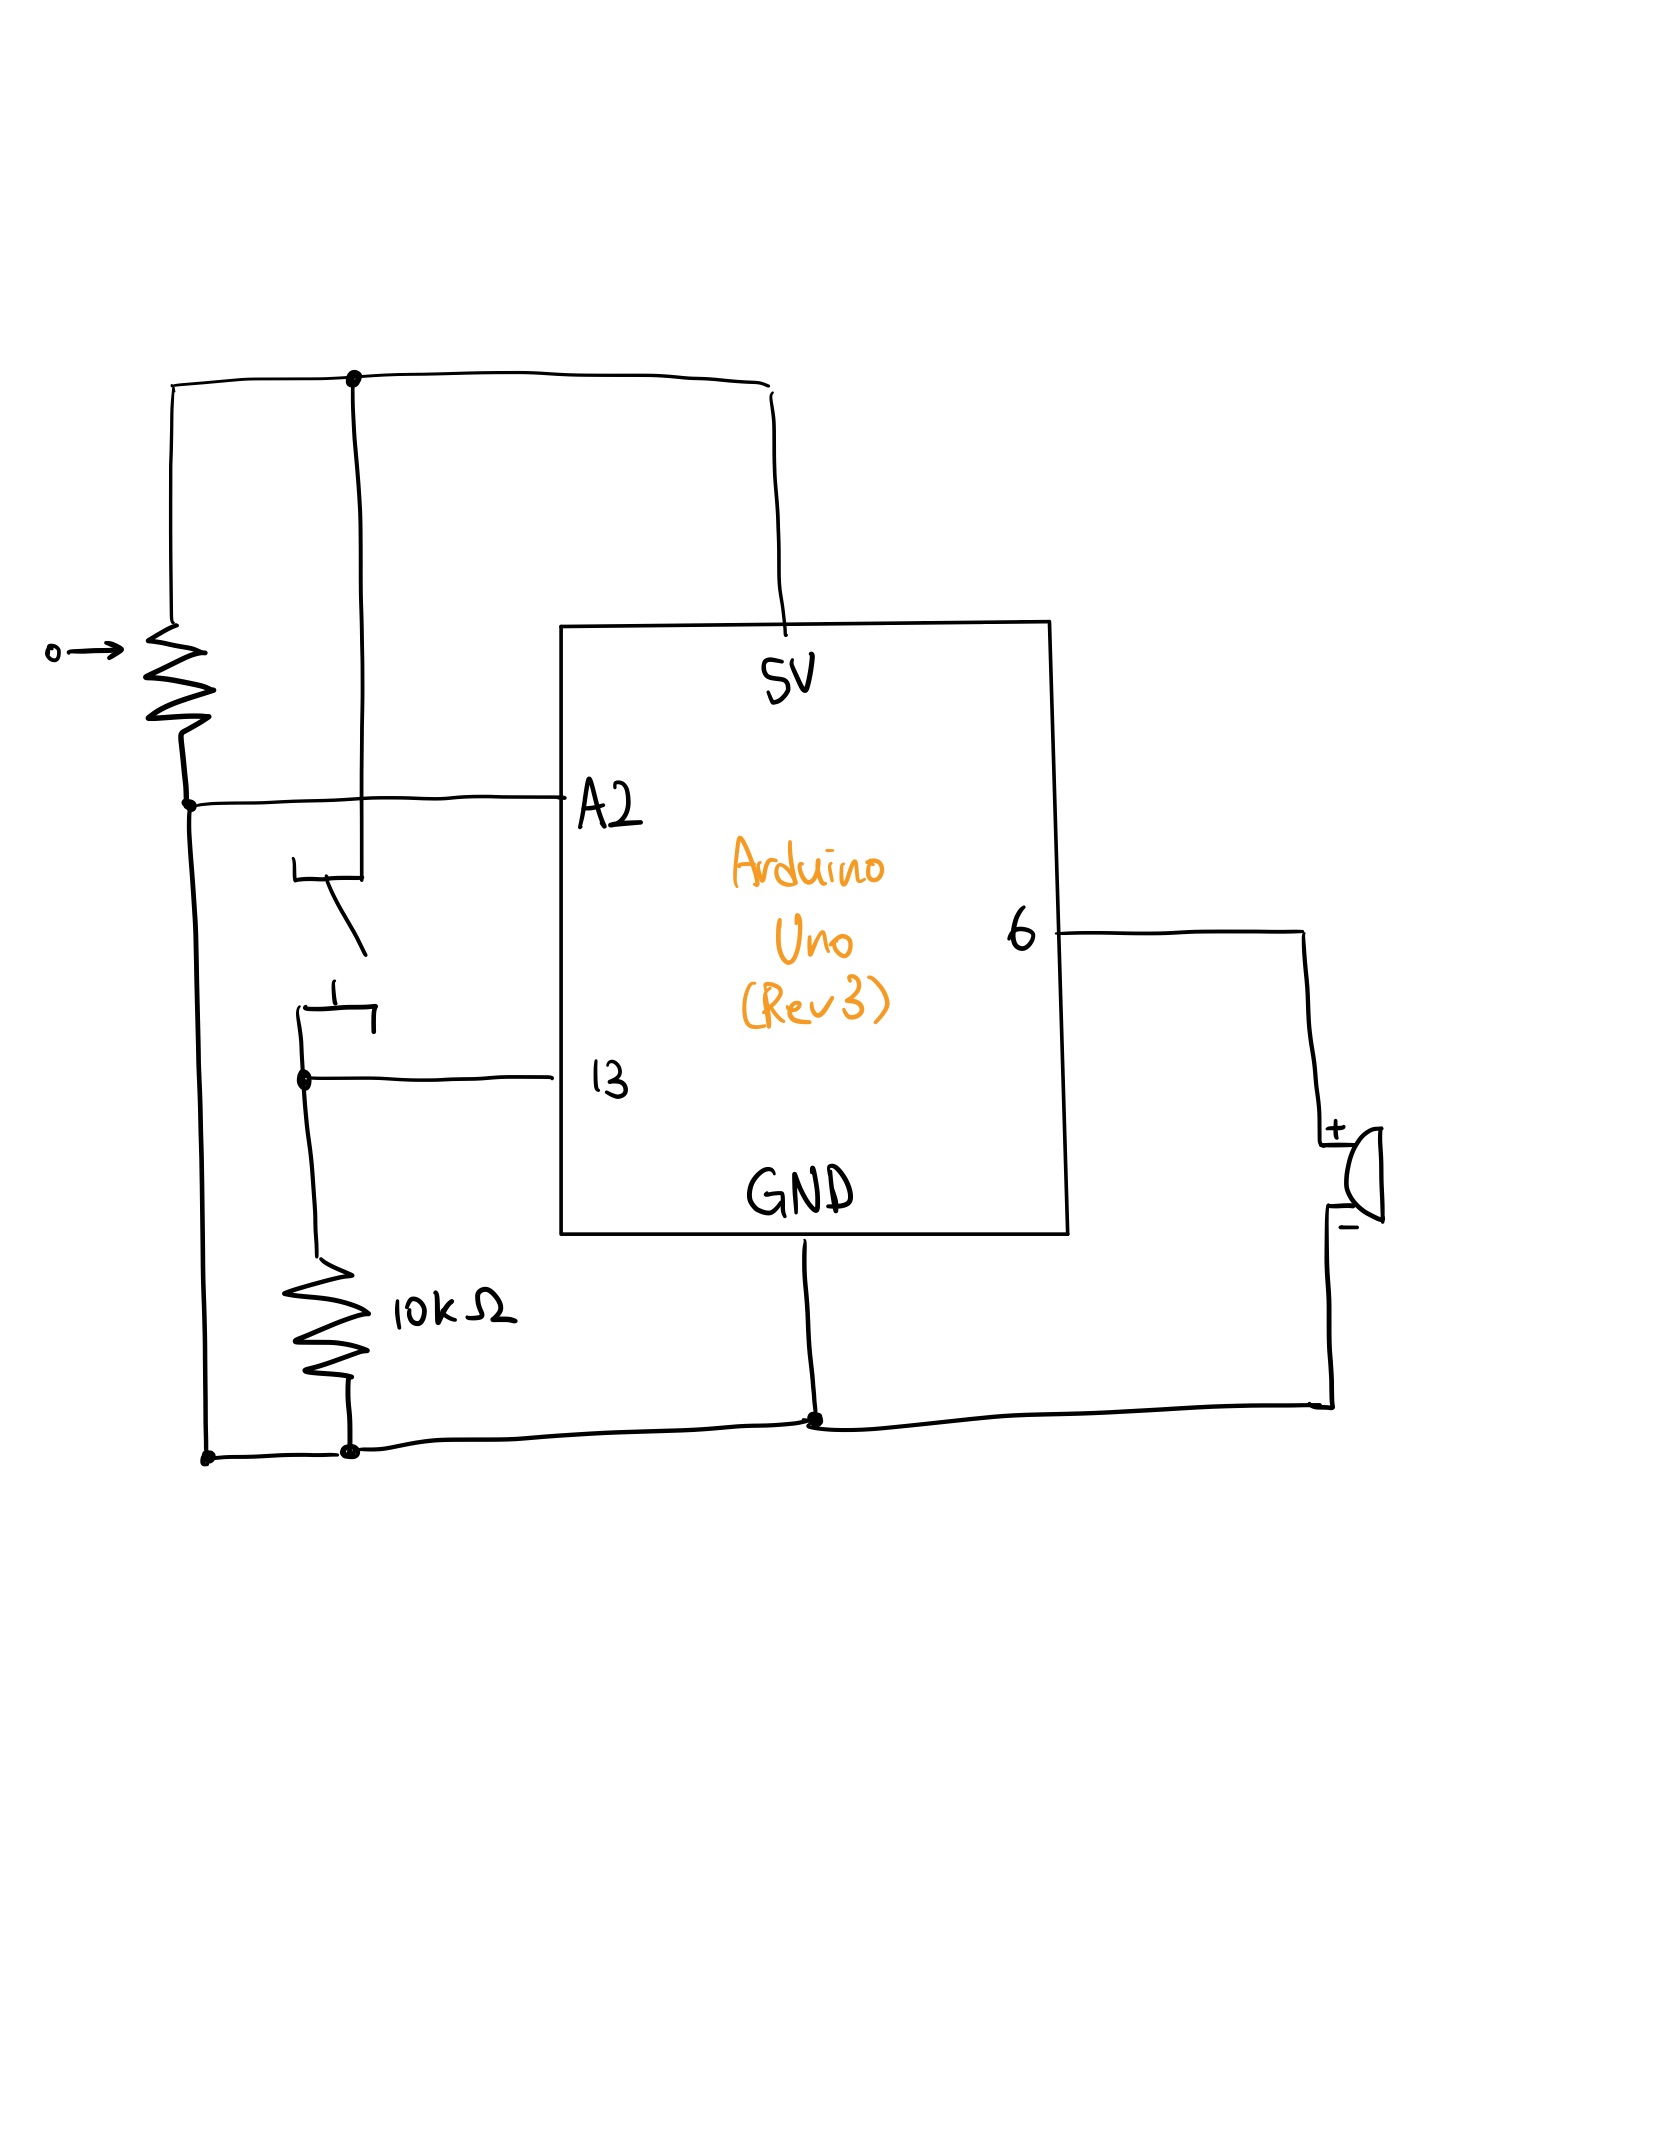 5V
A2
Arduino
Uno
(Rev3)
6
13
+
GND
-
10kΩ